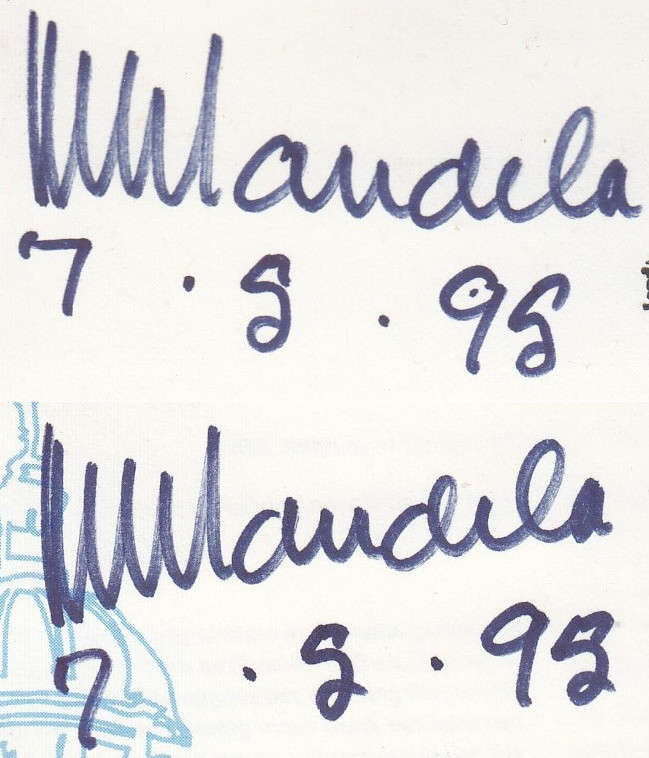 NMandela
7 . 8 . 98
NMandela
7 . 8 . 98